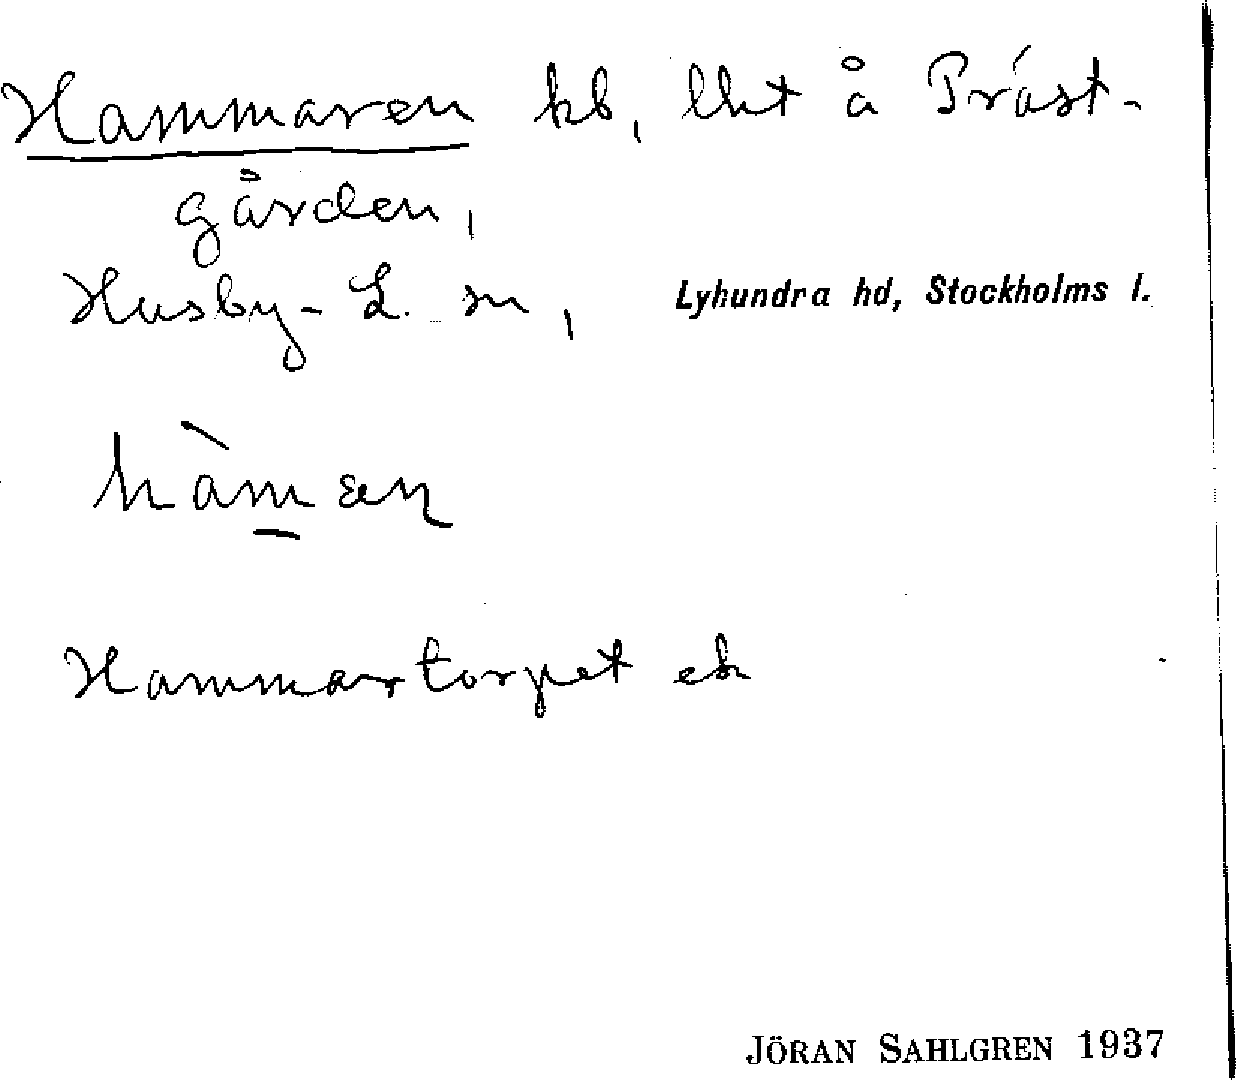 Hammaren hb, lht å Präst-
gården,
Husby-L. sn, Lyhundra hd, Stockholms l.
hàmaɳ
Hammartorpet ek
JÖRAN SAHLGREN 1937